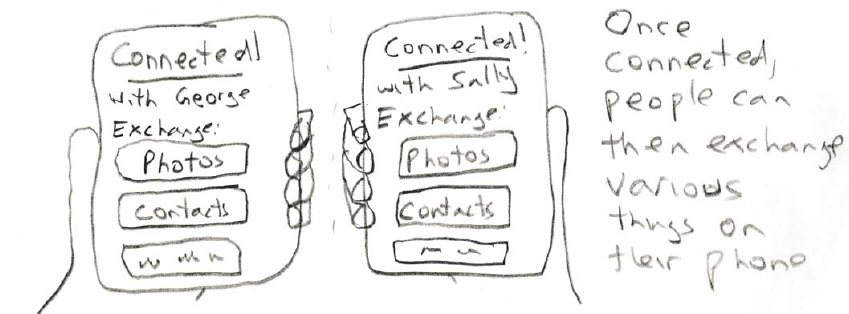 Connected!
with George
Exchange:
Photos
Contacts
Connected!
with Sally
Exchange:
Photos
Contacts
Once
connected,
people can
then exchange
various
things on
their phone